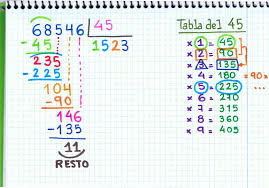 68546 45
-45 1523
235
-225
104
-90
146
-135
11
RESTO
Tabla del 45
x 1 = 45
x 2 = 90
x 3 = 135
x 4 = 180 = 90x...
x 5 = 225
x 6 = 270
x 7 = 315
x 8 = 360
x 9 = 405